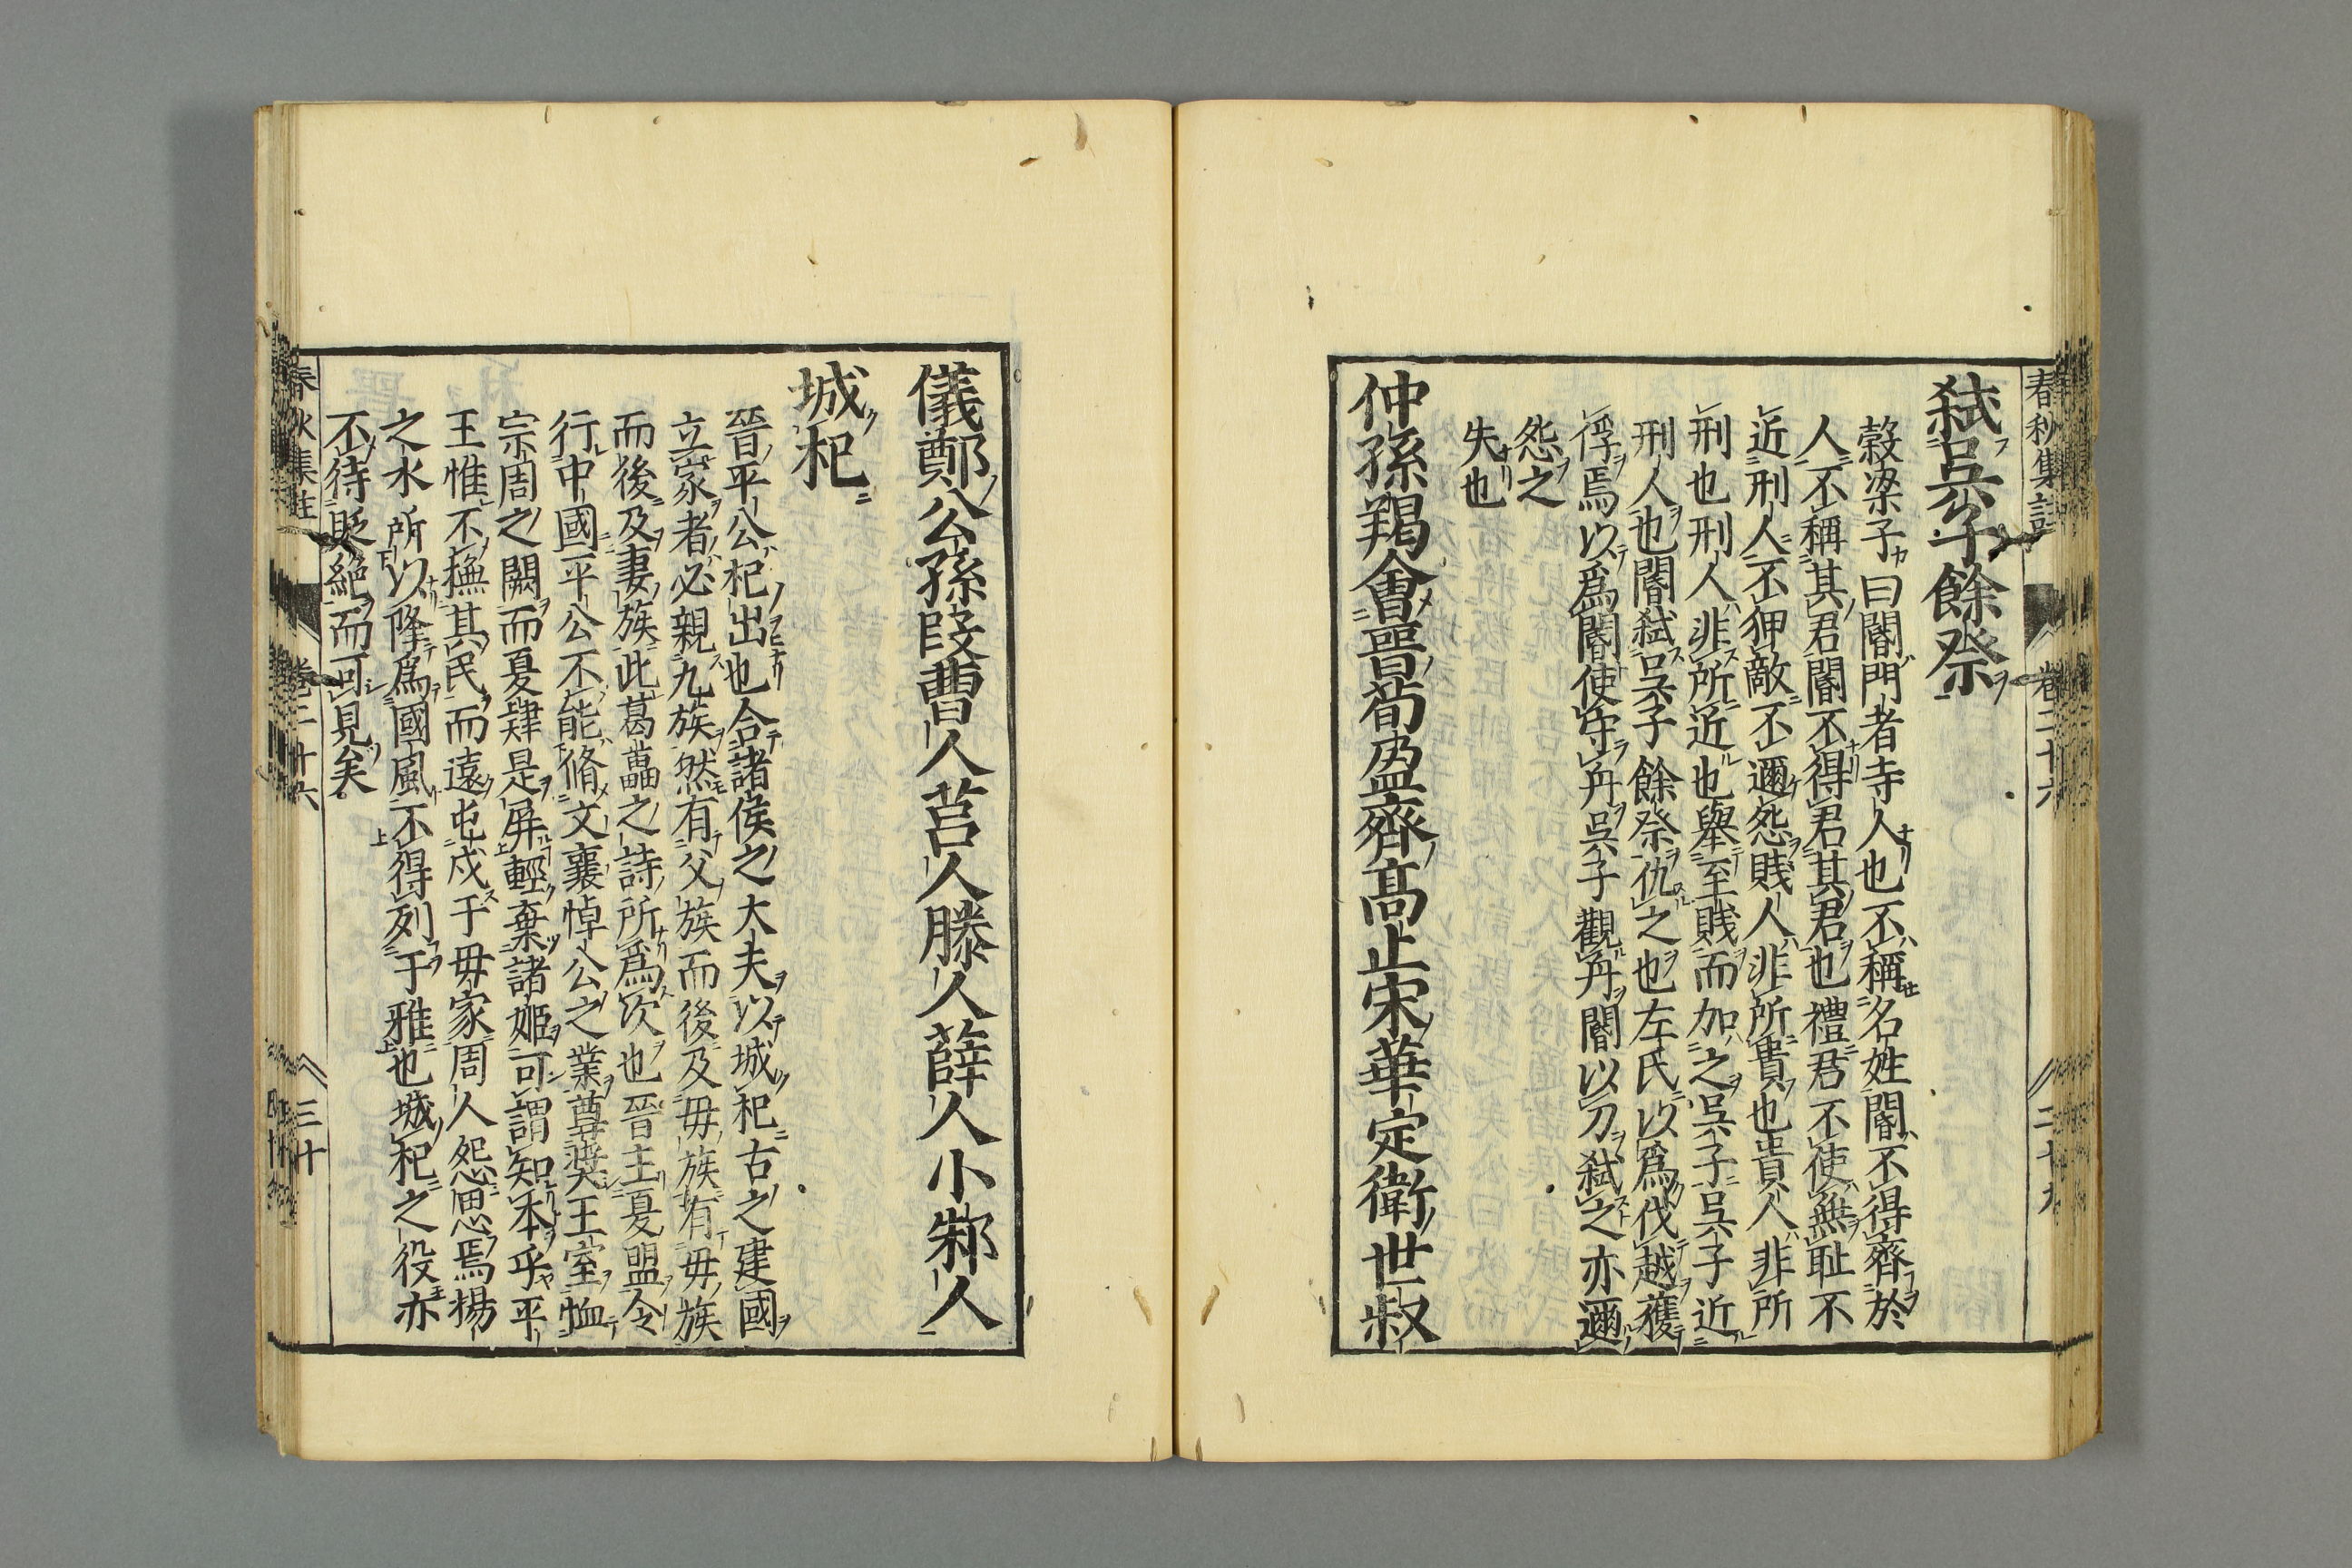 春秋集註 卷二十六 二十九
弑吳子餘祭
穀梁子曰閽門者寺人也不稱名姓閽不得齊於
人不稱其君閽不得君其君也禮君不使無耻不
近刑人不狎敵不邇怨賤人非所貴也貴人非所
刑也刑人非所近也舉至賤而加之吳子吳子近
刑人也閽弑吳子餘祭仇之也左氏以爲伐越獲
俘焉以爲閽使守舟吳子觀舟閽以刀弑之亦邇
怨之
失也
仲孫羯會晉荀盈齊高止宋華定衛世叔
儀鄭公孫段曹人莒人滕人薛人小邾人
城杞
晉平公杞出也合諸侯之大夫以城杞古之建國
立家者必親九族然有父族而後及毋族有毋族
而後及妻族此葛藟之詩所爲次也晉主夏盟令
行中國平公不能脩文襄悼公之業尊奬王室恤
宗周之闕而夏肄是屏輕棄諸姬可謂知本乎平
王惟不撫其民而遠屯戍于毋家周人怨思焉揚
之水所以降爲國風不得列于雅也城杞之役亦
不待貶絕而可見矣
春秋集註 卷二十六 三十